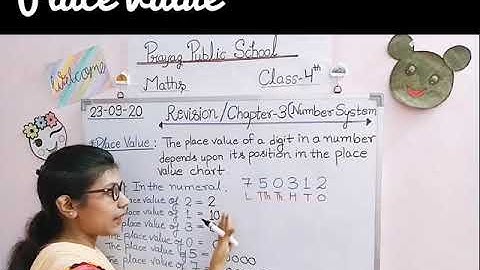 Place Value
Prayag Public School
Welcome
Maths
Class-4th
23-09-20
Revision/Chapter-3 (Number System
Place Value: The place value of a digit in a number
depends upon its position in the place
value chart
In the numeral, 7 5 0 3 1 2
L TTh Th H T O
place value of 2 = 2
place value of 1 = 10
place value of 3 =
The place value of 0 =
of 5 =
of 7 =